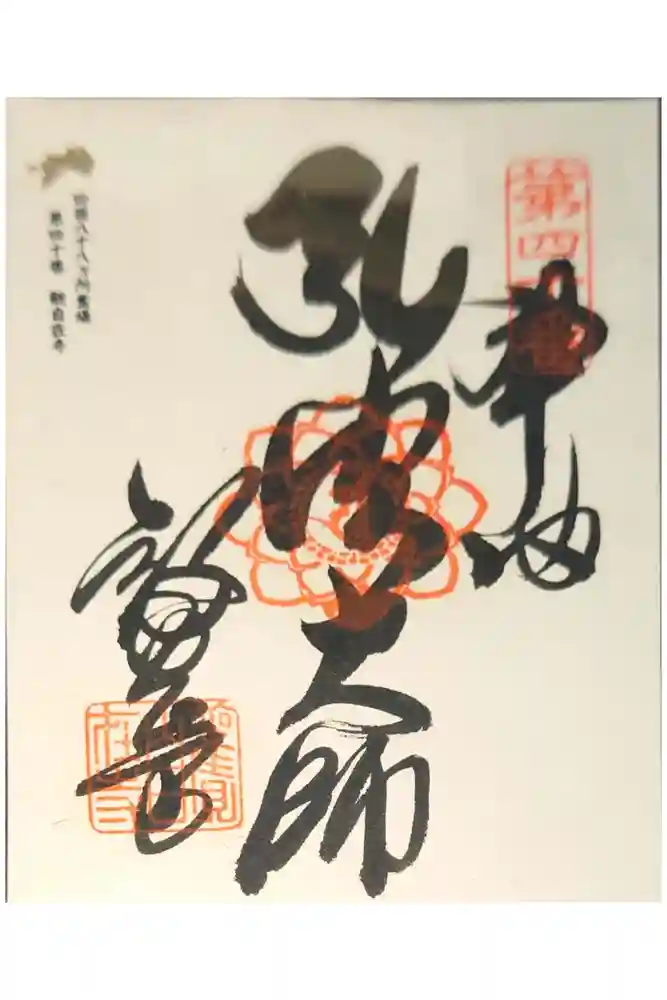 第四十番
奉納
弘法大師
観自在寺
四国八十八ヶ所霊場
第四十番 観自在寺